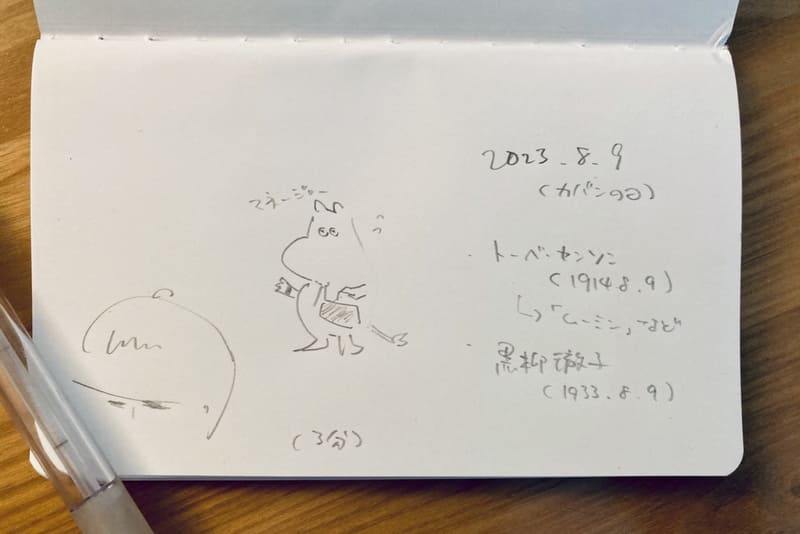 2023.8.9
(カバンの日)
マネージャー
・トーベ・ヤンソン
(1914.8.9)
↳「ムーミン」など
・黒柳徹子
(1933.8.9)
(3分)